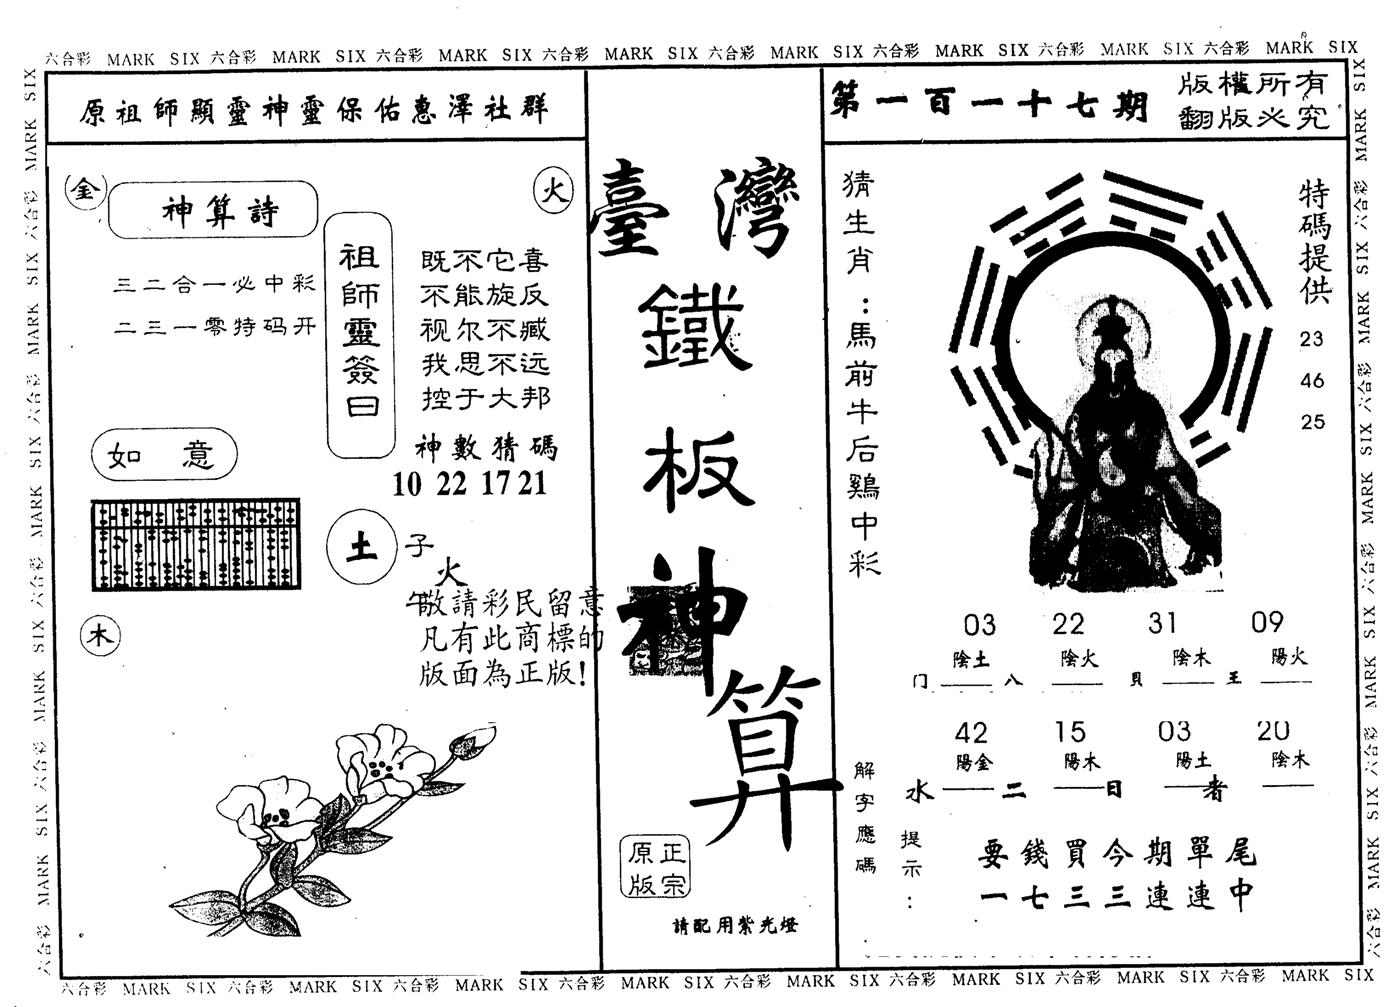 六合彩 MARK SIX 六合彩 MARK SIX 六合彩 MARK SIX 六合彩 MARK SIX 六合彩 MARK SIX 六合彩 MARK SIX 六合彩 MARK SIX 六合彩 MARK SIX
原祖師顯靈神靈保佑惠澤社群
金
神算詩
火
三二合一必中彩
二三一零特码开
祖師靈簽曰
既不它喜
不能旋反
视尔不臧
我思不远
控于大邦
神數猜碼
10 22 17 21
如意
土
子
火
午
木
敬請彩民留意
凡有此商標的
版面為正版!
臺灣
鐵
板
神
算
正宗
原版
請配用紫光燈
第一百一十七期
版權所有
翻版必究
猜生肖:馬前牛后鷄中彩
特碼提供
23
46
25
03 22 31 09
陰土 陰火 陰木 陽火
门 八 貝 王
42 15 03 20
陽金 陽木 陽土 陰木
水 二 日 者
解字應碼
提示:
要錢買今期單尾
一七三三連連中
六合彩 MARK SIX 六合彩 MARK SIX 六合彩 MARK SIX 六合彩 MARK SIX 六合彩 MARK SIX 六合彩 MARK SIX 六合彩 MARK SIX 六合彩 MARK SIX